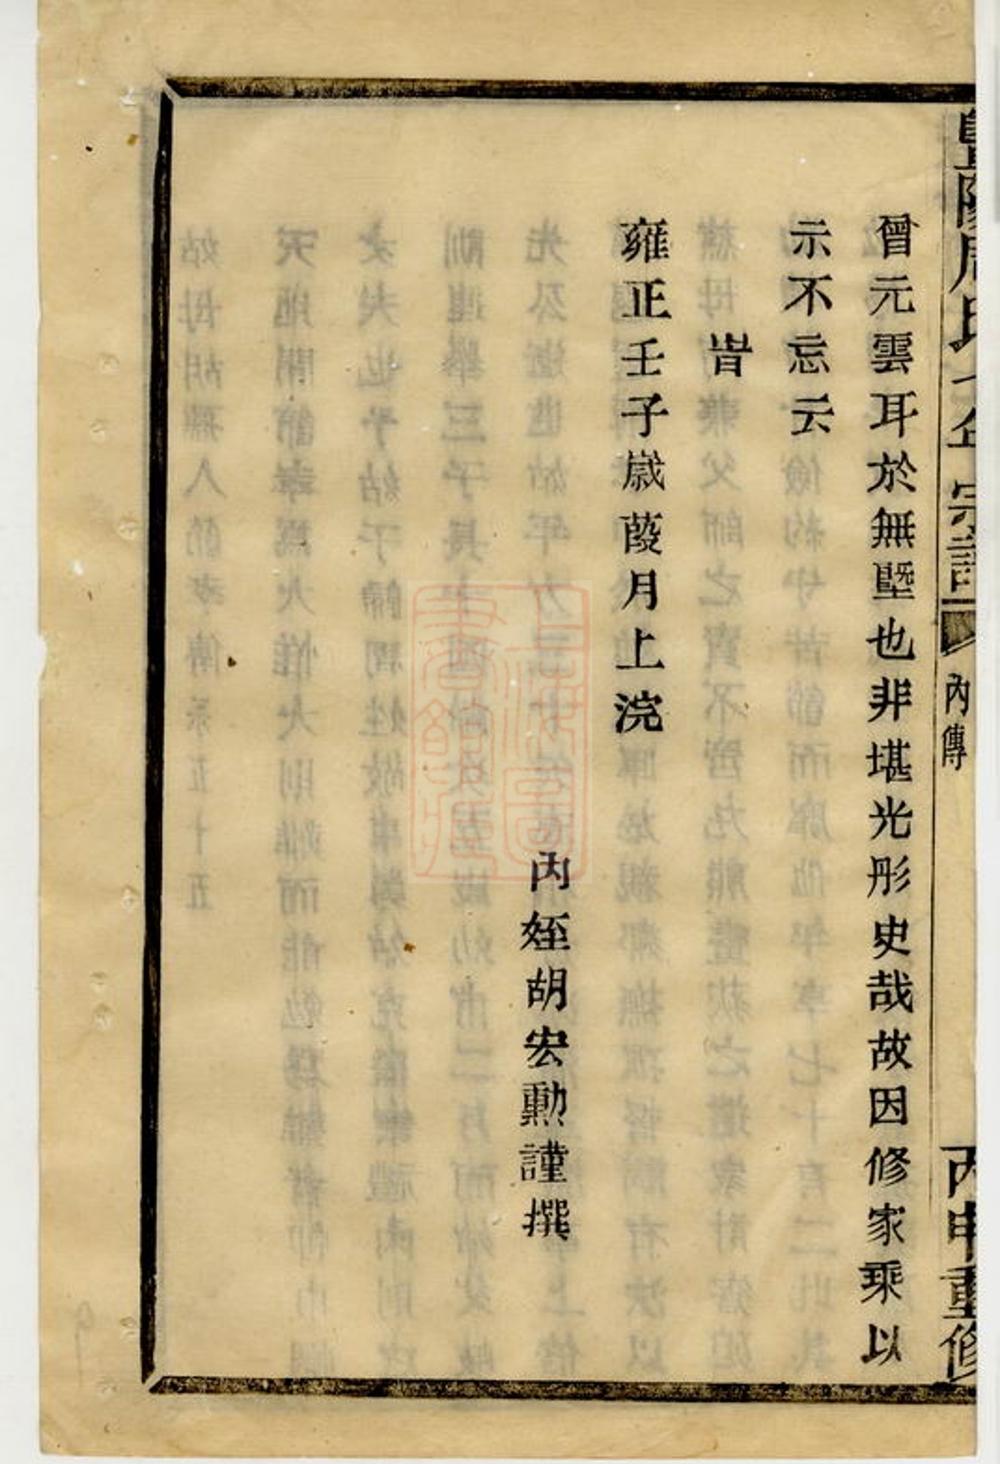 暨陽周氏宗譜
內傳
丙申重修
曾元雲耳於無墍也非堪光彤史哉故因修家乘以
示不忘云
旹
雍正壬子歲葭月上浣
內姪胡宏勳謹撰